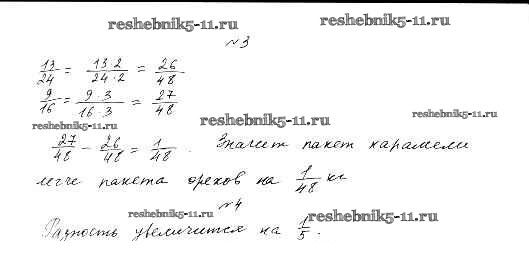 reshebnik5-11.ru reshebnik5-11.ru
№3
13/24 = 13·2/24·2 = 26/48
9/16 = 9·3/16·3 = 27/48
reshebnik5-11.ru reshebnik5-11.ru reshebnik5-11.ru
27/48 - 26/48 = 1/48. Значит пакет карамели
легче пакета орехов на 1/48 кг
№4
reshebnik5-11.ru reshebnik5-11.ru
Разность увеличится на 1/5.